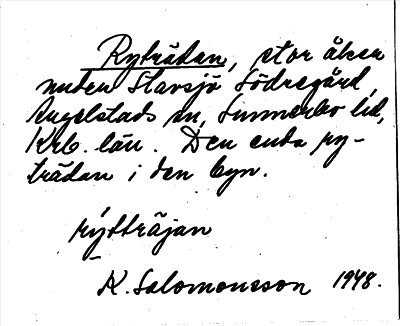 Ryträdan, stor åker
under Slavsjö Södregård,
Angelstads sn, Sunnerbo hd,
Krb. län. Den enda ry-
trädan i den byn.
rýtträjan
K. Salomonsson 1948.